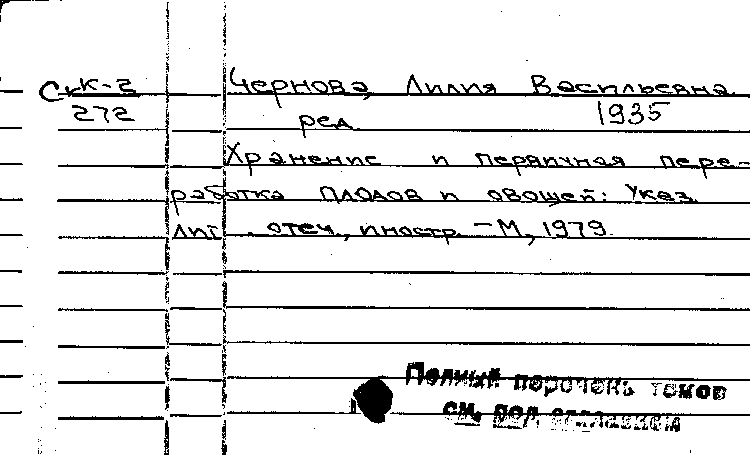 СкК-2 Чернова, Лилия Васильевна
272 ред. 1935
Хранение и первичная пере-
работка плодов и овощей: Указ.
лит. отеч., иностр. – М., 1979.
Полный перечень томов
см. под заглавием